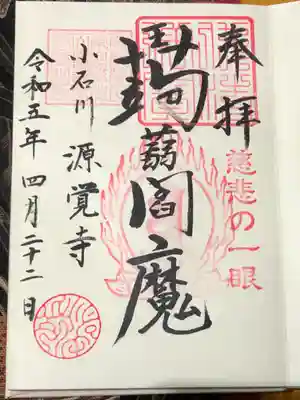 奉拝
慈悲の一眼
蒟蒻閻魔
小石川
源覚寺
令和五年四月二十二日